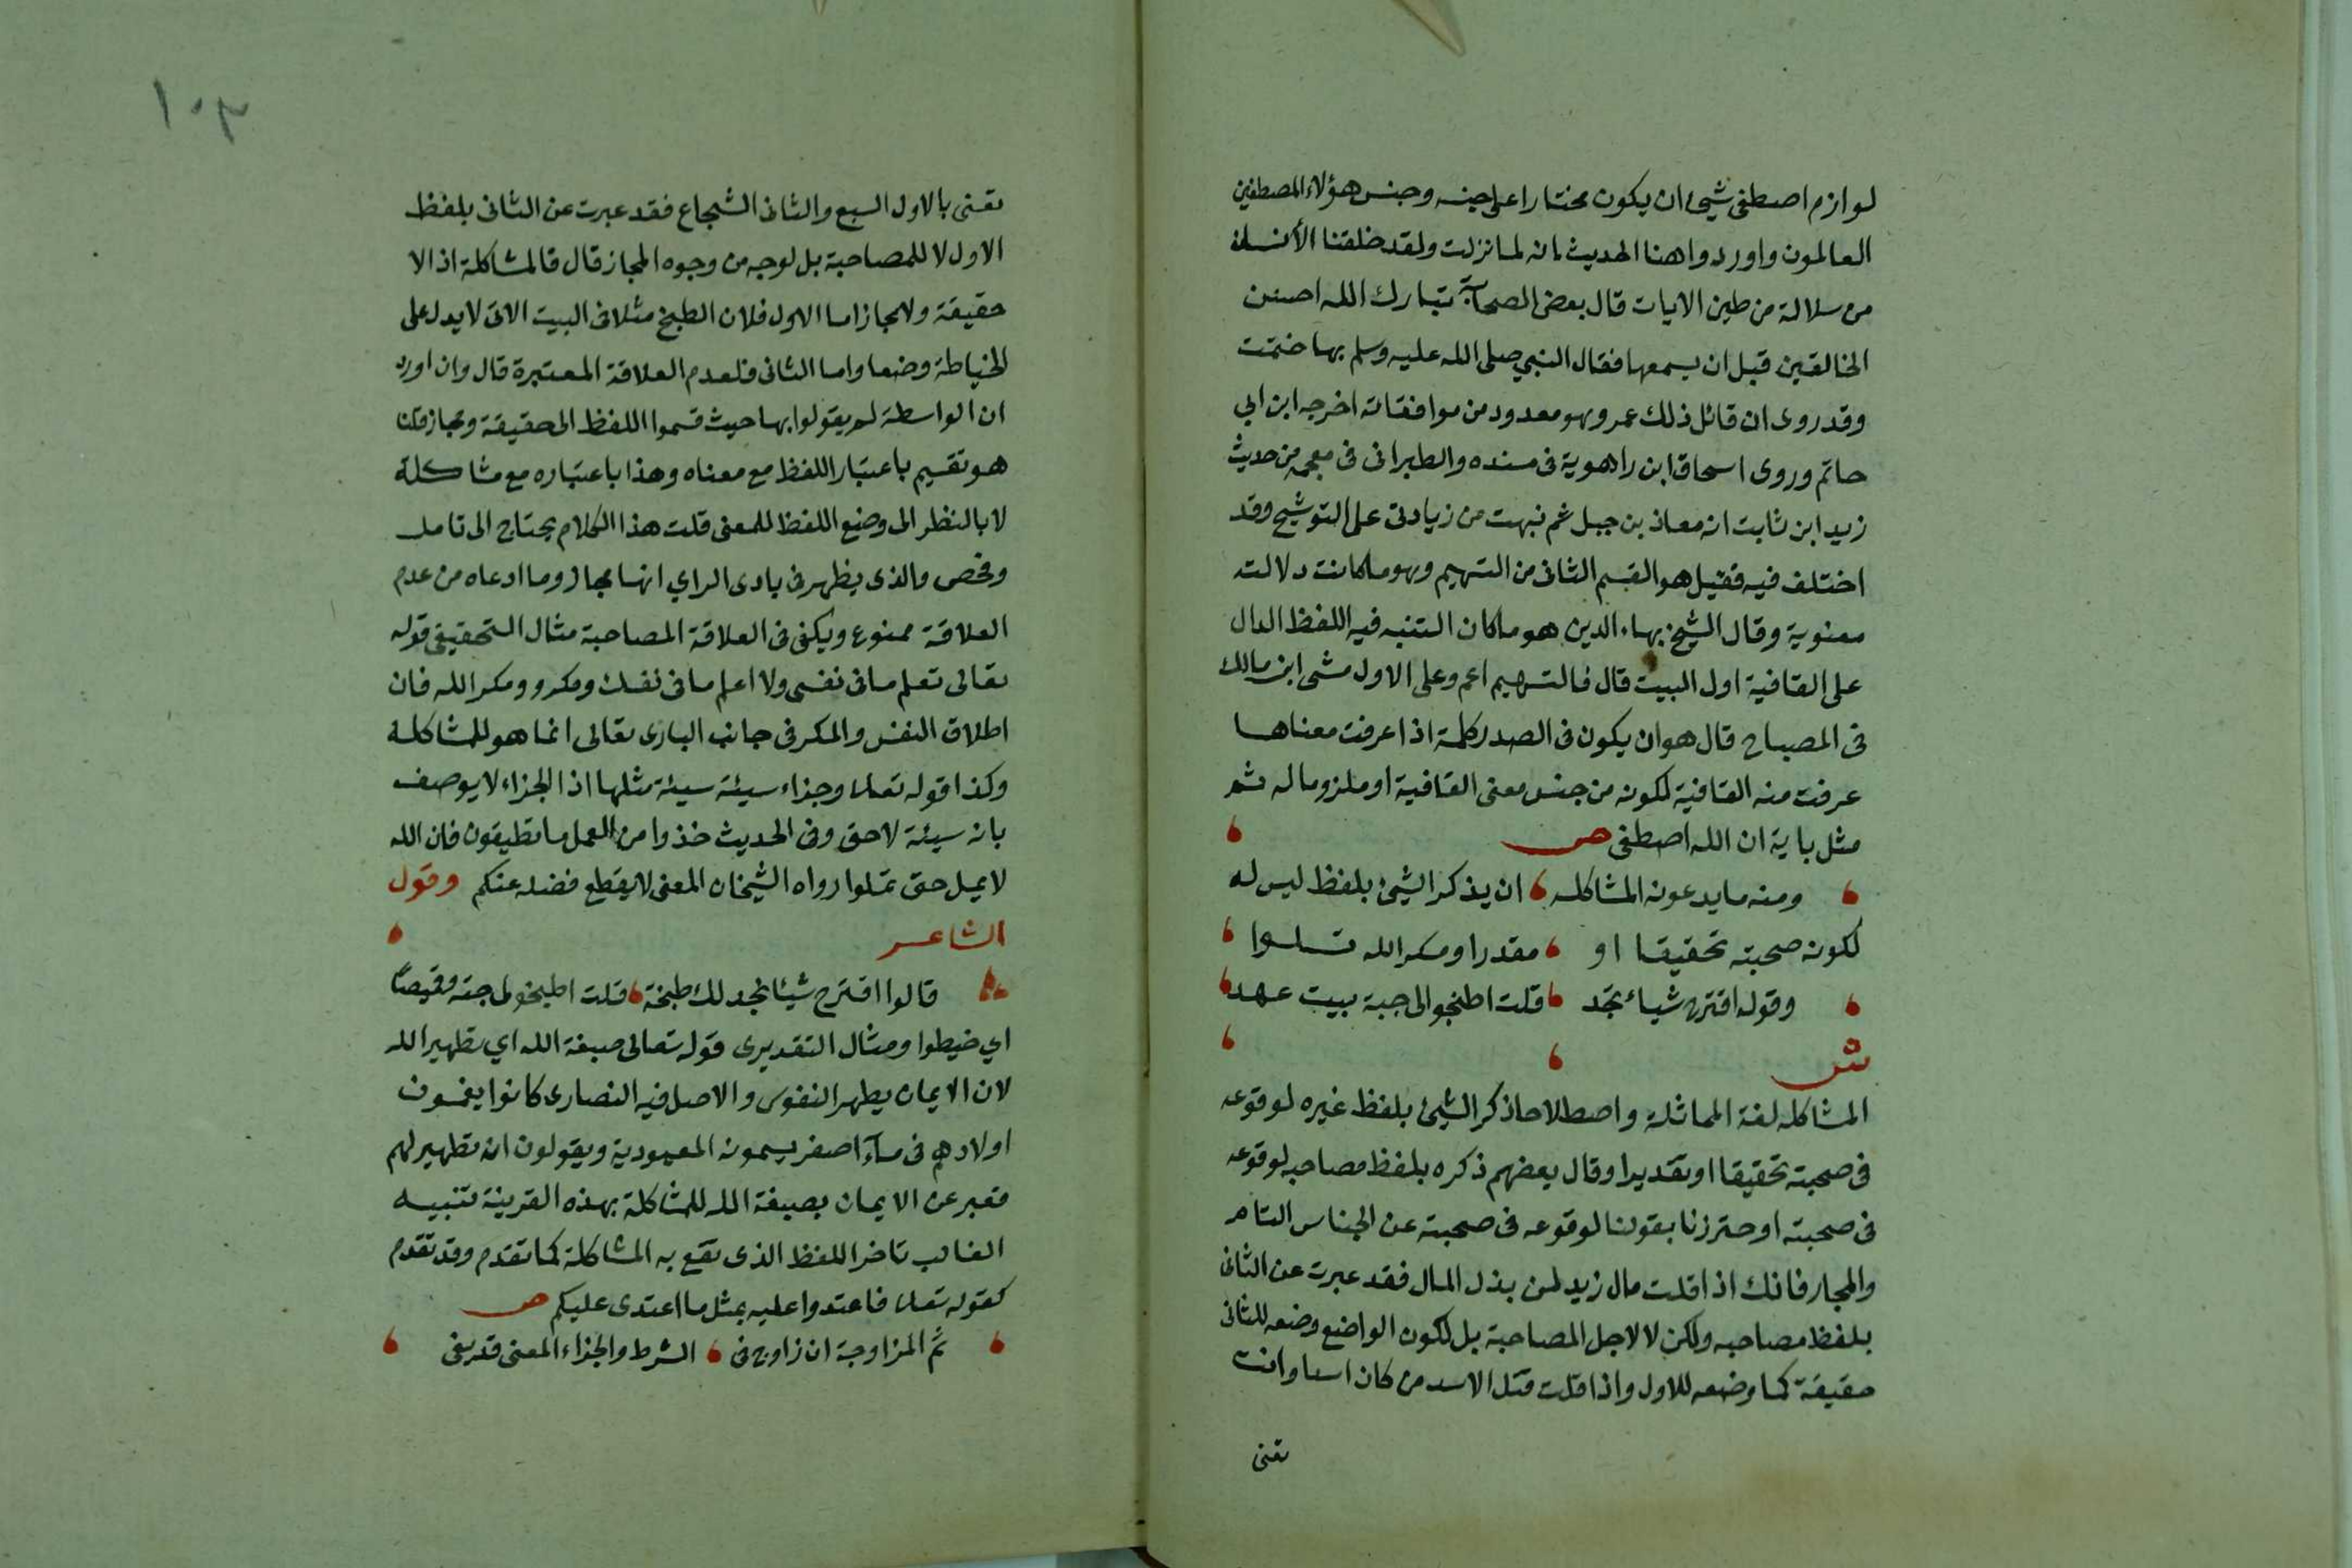 لوازم اصطفى شيئ ان يكون مختارا على جنسه وجنس هؤلاء المصطفين
العالمون واوردوا هنا الحديث انه لما نزلت ولقد خلقنا الأنسان
من سلالة من طين الايات قال بعض الصحابة تبارك الله احسن
الخالقين قبل ان يسمعها فقال النبي صلى الله عليه وسلم بها ختمت
وقد روى ان قائل ذلك عمر وهو معدود من موافقاته اخرجه ابن ابي
حاتم وروى اسحاق ابن راهوية في مسنده والطبراني في معجمه من حديث
زيد ابن ثابت انه معاذ بن جبل ثم نبهت من زيادتي على التوشيح وقد
اختلف فيه فقيل هو القسم الثاني من التسهيم وهو ما كانت دلالته
معنوية وقال الشيخ بهاء الدين هو ما كان التنبه فيه اللفظ الدال
على القافية اول البيت قال فالتسهيم اعم وعلى الاول مشى ابن مالك
في المصباح قال هو ان يكون في الصدر كلمة اذا عرفت معناها
عرفت منه القافية لكونه من جنس معنى القافية او ملزوما له ثم
مثل باية ان الله اصطفى ص
ومنه ما يدعونه المشاكله ان يذكر الشيئ بلفظ ليس له
لكونه صحبته تحقيقا او مقدرا ومكر الله تلوا
وقوله اقترح شياء نجد قلت اطبخوا لى جبة بيت عهد
ش
المشاكله لغة المماثلة واصطلاحا ذكر الشيئ بلفظ غيره لوقوعه
في صحبته تحقيقا او تقديرا وقال بعضهم ذكره بلفظ مصاحبه لوقوعه
في صحبته احترزنا بقولنا لوقوعه في صحبته عن الجناس التام
والمجاز فانك اذا قلت مال زيد لمن بذل المال فقد عبرت عن الثاني
بلفظ مصاحبه ولكن لا لاجل المصاحبة بل لكون الواضع وضعه للثاني
حقيقة كما وضعه للاول واذا قلت قتل الاسد من كان اسدا وانت
تعنى
١٠٣
تعنى بالاول السبع والثاني الشجاع فقد عبرت عن الثاني بلفظ
الاول لا للمصاحبة بل لوجه من وجوه المجاز قال فالمشاكلة اذا لا
حقيقة ولا مجاز اما الاول فلان الطبخ مثلا في البيت الاتى لا يدل على
الخياطة وضعا واما الثاني فلعدم العلاقة المعتبرة قال وان اورد
ان الواسطة لم يقولوا بها حيث قسموا اللفظ الى حقيقة ومجاز قلنا
هو تقسيم باعتبار اللفظ مع معناه وهذا باعتباره مع مشاكله
لا بالنظر الى وضع اللفظ للمعنى قلت هذا الكلام يحتاج الى تامل
وفحص والذى يظهر في بادى الراي انها مجاز وما ادعاه من عدم
العلاقة ممنوع ويكفى في العلاقة المصاحبة مثال التحقيقى قوله
تعالى تعلم ما في نفسى ولا اعلم ما في نفسك ومكروا ومكر الله فان
اطلاق النفس والمكر في جانب البارى تعالى انما هو للمشاكلة
وكذا قوله تعالى وجزاء سيئة سيئة مثلها اذ الجزاء لا يوصف
بانه سيئة لا حق وفي الحديث خذوا من العمل ما تطيقون فان الله
لا يمل حتى تملوا رواه الشيخان المعنى لا يقطع فضله عنكم وقول
الشاعر
قالوا اقترح شيئا نجد لك طبخه قلت اطبخوا لى جبة وقميصًا
اي خيطوا ومثال التقديرى قوله تعالى صبغة الله اي تطهير الله
لان الايمان يطهر النفوس والاصل فيه النصارى كانوا يغمسون
اولادهم في ماء اصفر يسمونه المعمودية ويقولون انه تطهير لهم
فعبر عن الايمان بصبغة الله للمشاكلة بهذه القرينة تنبيه
الغالب تاخر اللفظ الذى تقع به المشاكلة كما تقدم وقد تقدم
كقوله تعالى فاعتدوا عليه بمثل ما اعتدى عليكم ص
ثم المزاوجة ان زاوج في الشرط والجزاء المعنى